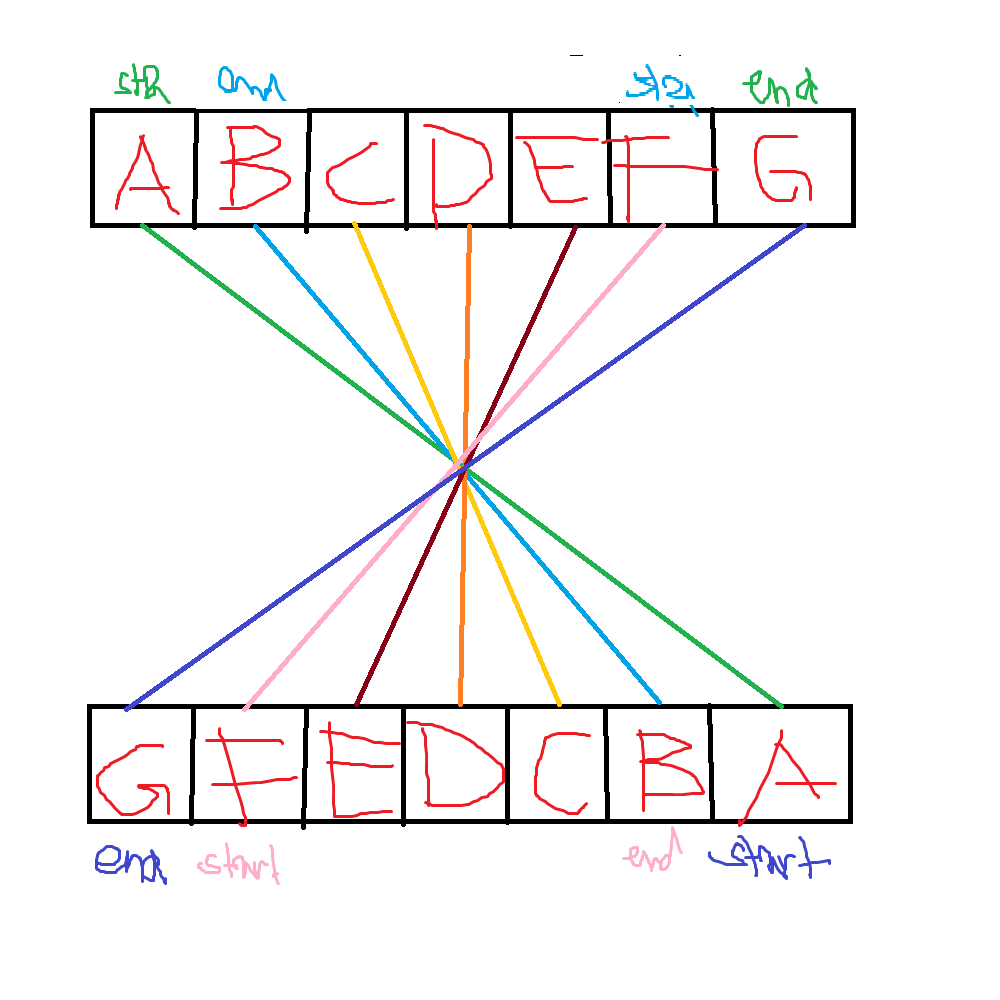 end end
A B C D E F G
G F E D C B A
end start end start